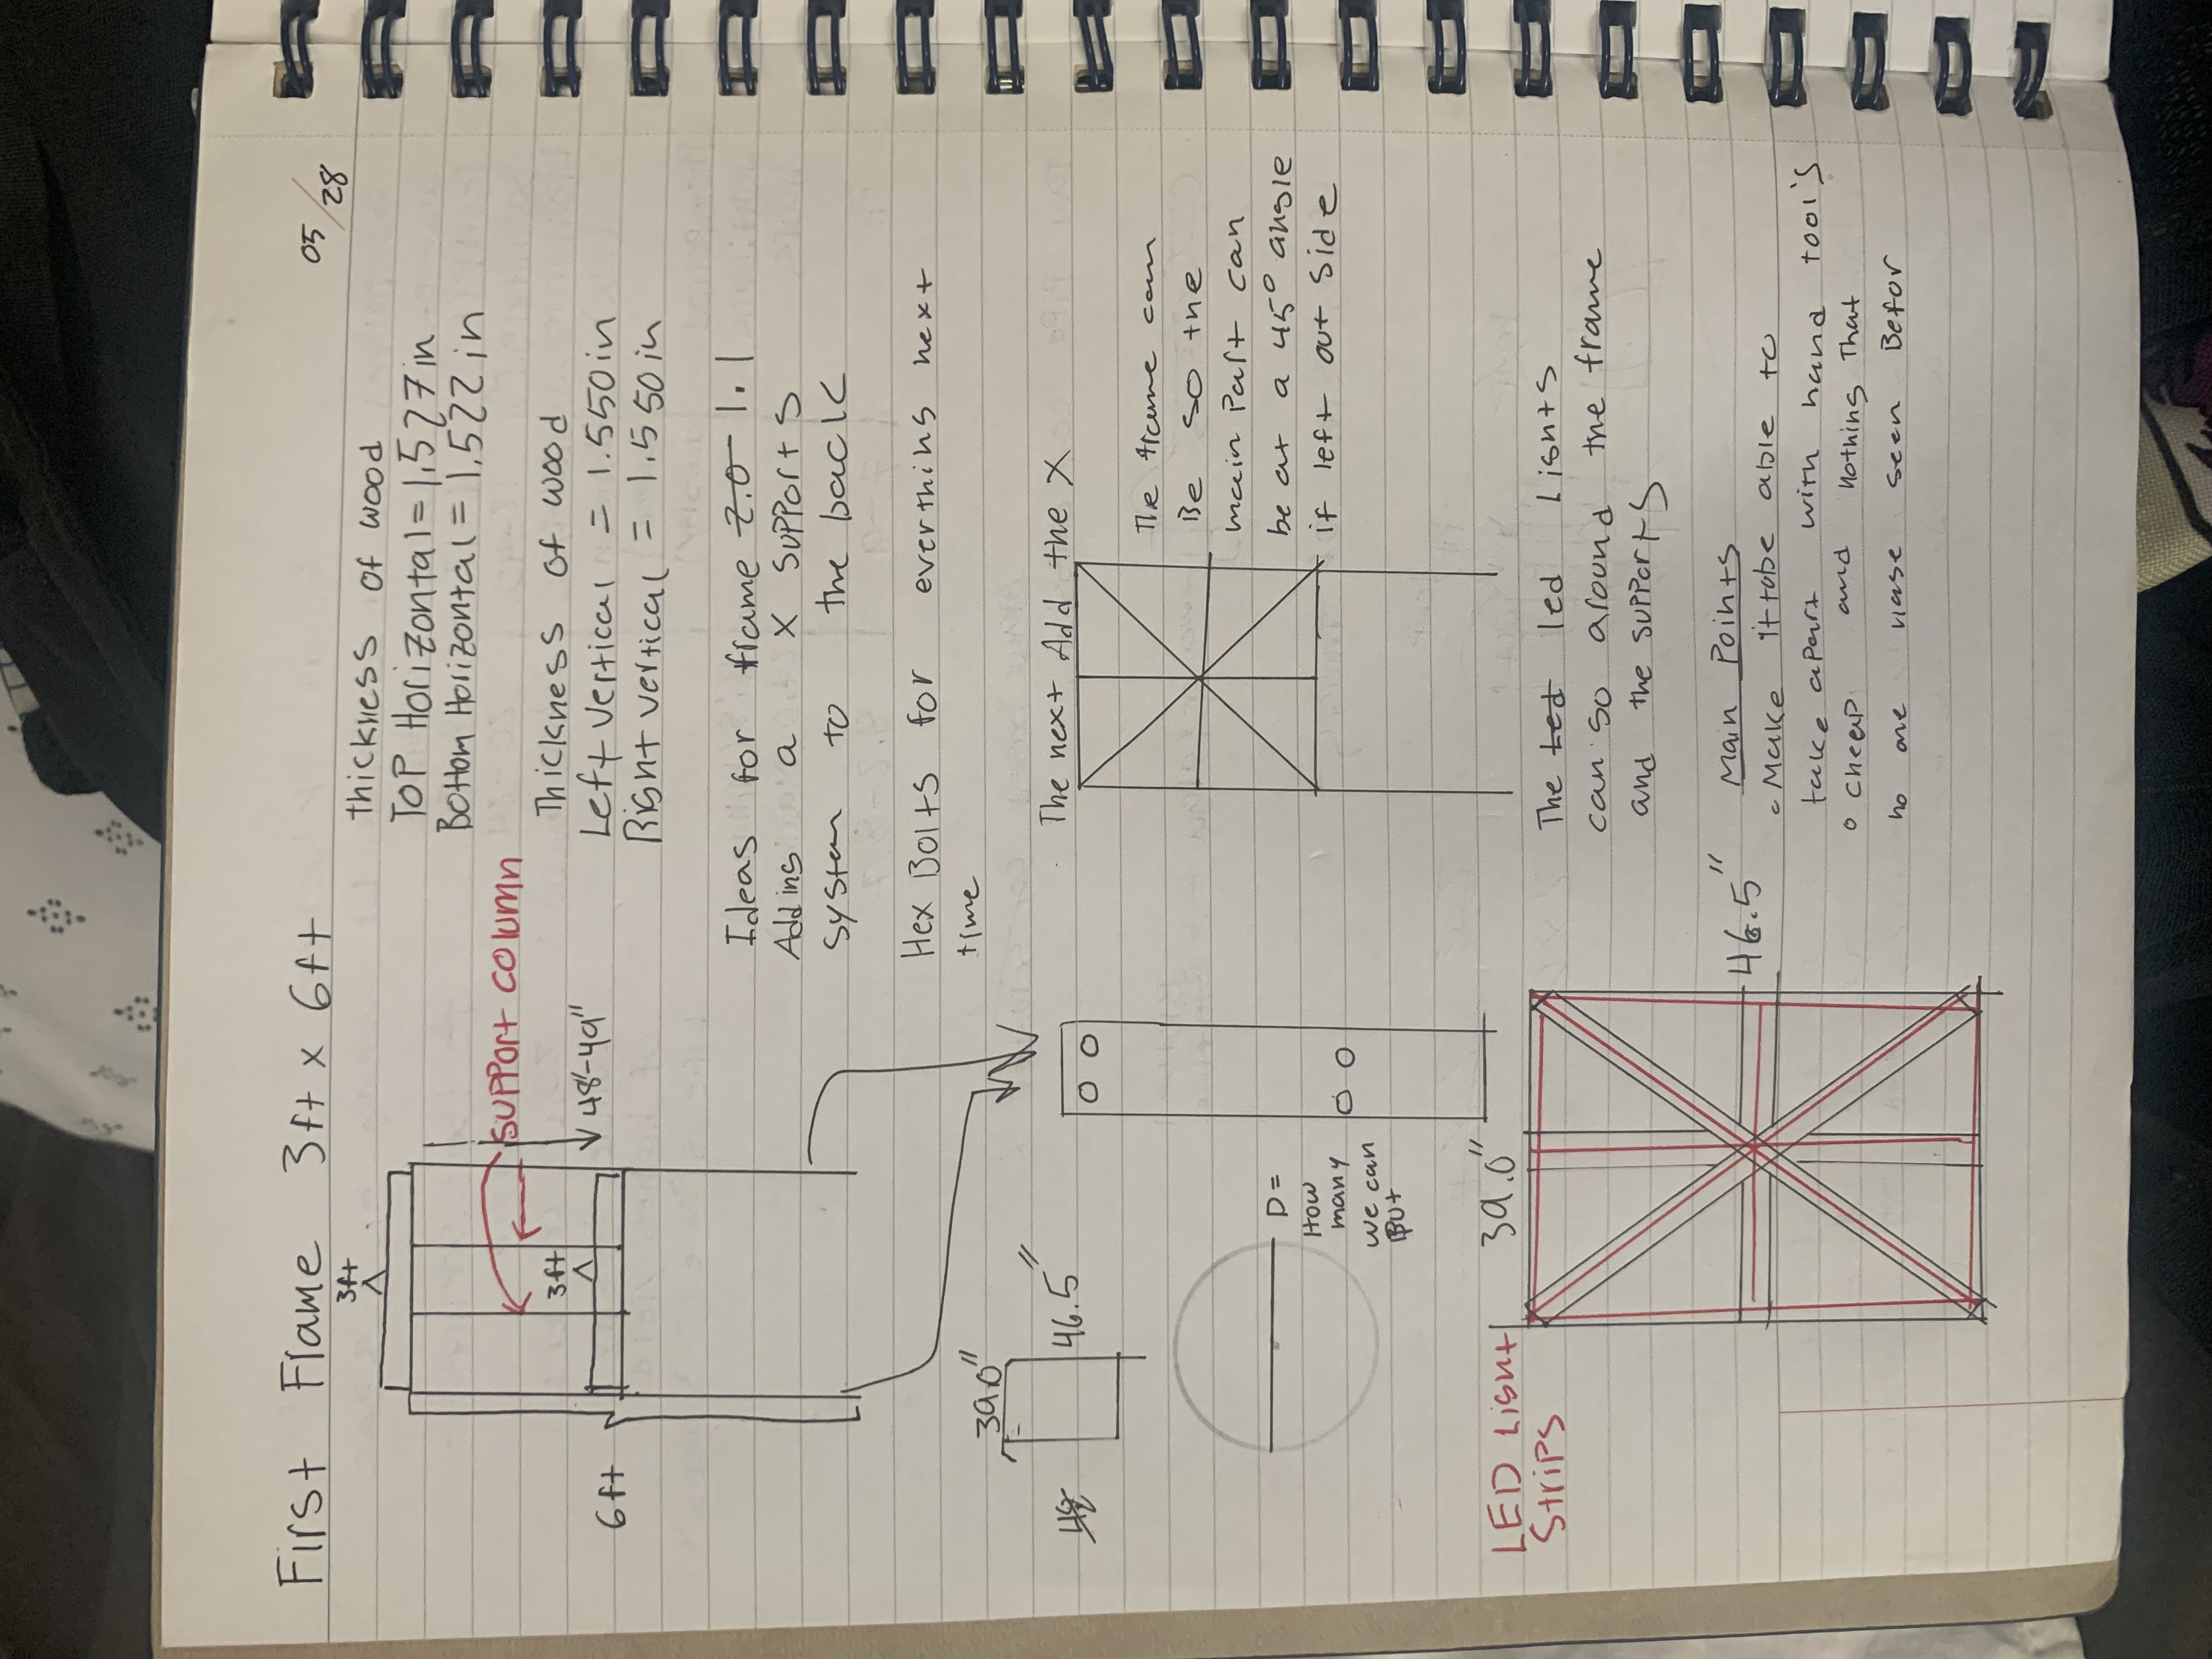 05/28
First Frame 3ft x 6ft
thickness of wood
TOP Horizontal = 1.527in
Bottom Horizontal = 1.522 in
3ft
SUPPORT COLUMN
Thickness of wood
Left vertical = 1.550in
Right vertical = 1.550in
3ft
48"-49"
6ft
Ideas for frame 2.0 1.1
Adding a X Supports
System to the back
Hex Bolts for everthing next
time
The next Add the X
39.0"
46.5"
48
The frame can
Be so the
main Part can
be at a 45° angle
if left out side
D =
How
many
we can
Put
LED Light
Strips
39.0"
46.5"
The ted led lights
can go around the frame
and the supports
Main Points
Make it tobe able to
take apart with hand tool's
cheep and nothing that
no one seen Befor